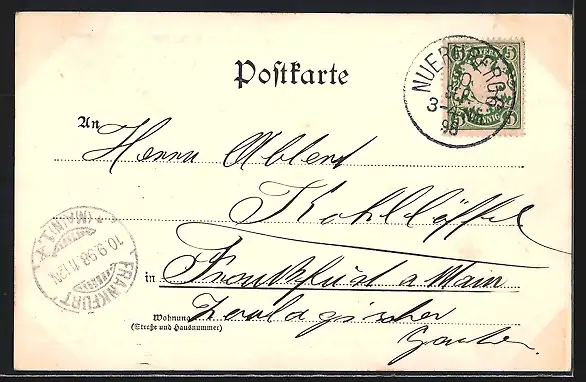 Postkarte
5 BAYERN 5
PFENNIG
NUERNBERG
SEP.
3-4
98
An
Herrn Albert
Kohllöffel
in Frankfurt a Main
Wohnung Zoologischer
(Straße und Hausnummer)
Garten.
FRANKFURT (MAIN) 1.
10.9.98. 11-12N